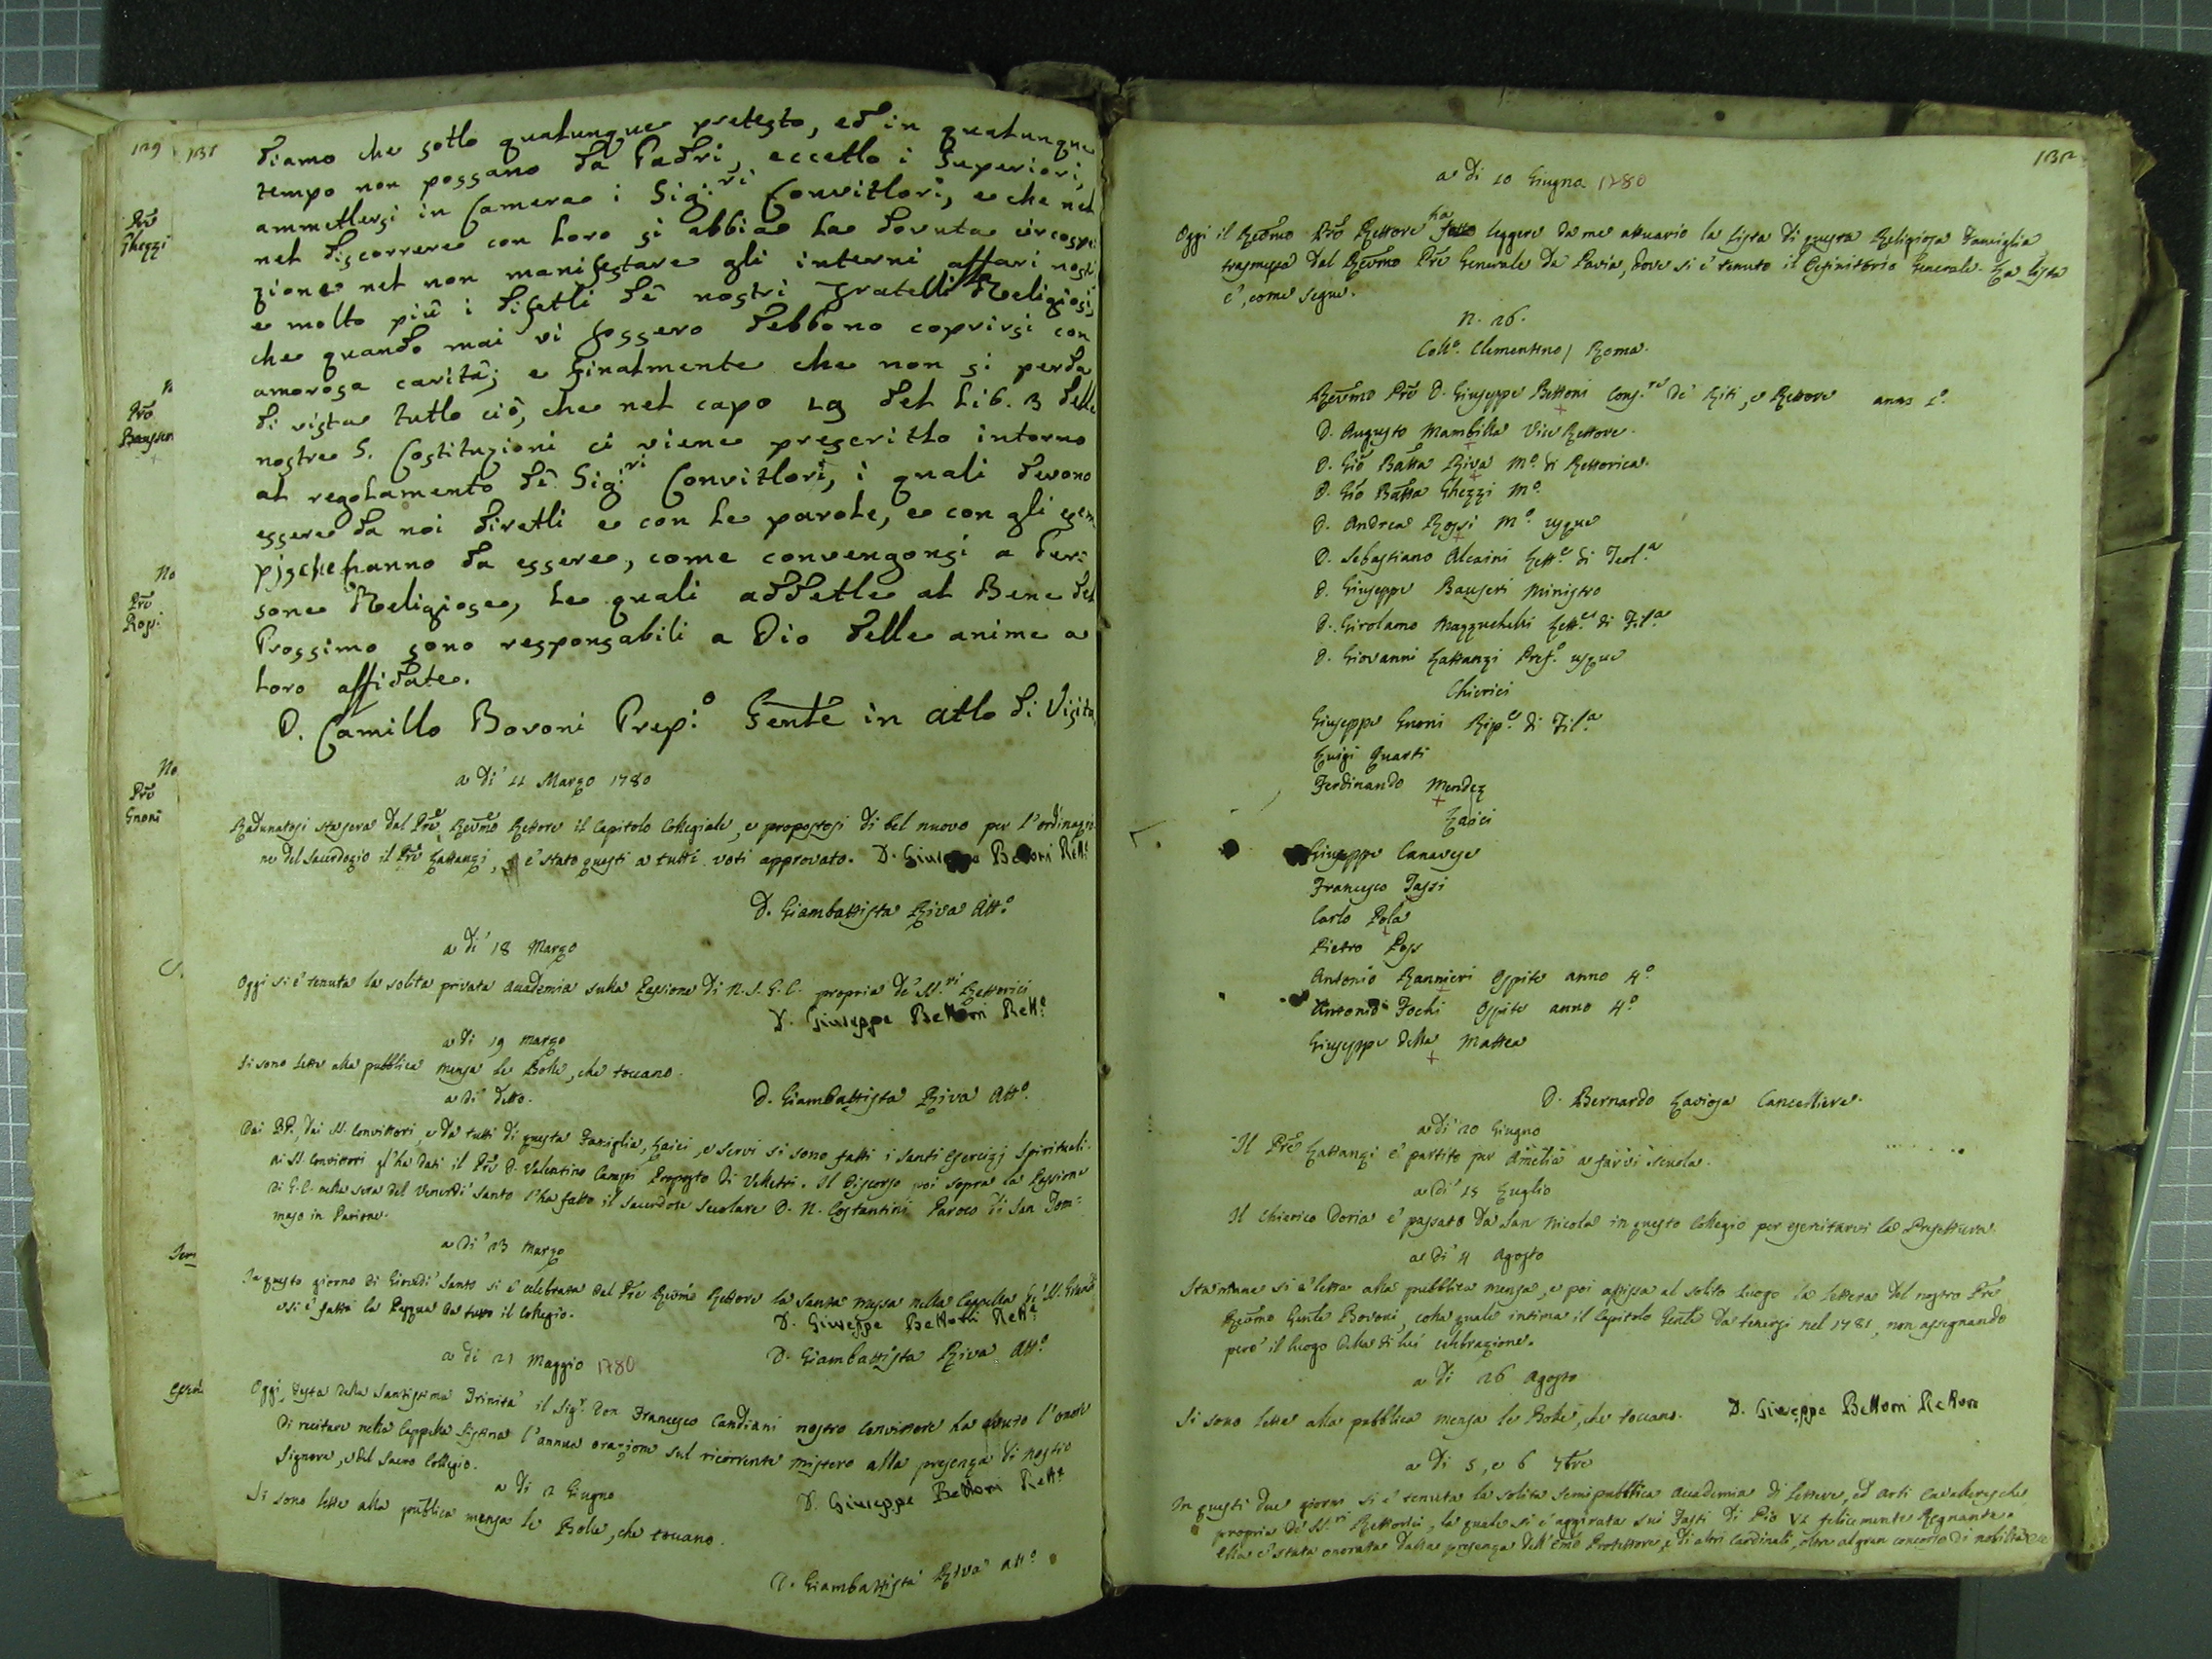 129 131
diamo che sotto qualunque pretesto, ed in qualunque
tempo non possano da Padri, eccetto i Superiori,
ammettersi in Camera i Sig.ri Convittori, e che nel
nel discorrere con loro si abbia la dovuta circospe
zione nel non manifestare gli interni affari nostri
e molto più i difetti de nostri Fratelli Religiosi,
che quando mai vi fossero debbono coprirsi con
amorosa carità; e finalmente che non si perda
di vista tutto ciò, che nel capo 19 del Lib. 3 delle
nostre S. Costituzioni ci viene prescritto intorno
al regolamento de Sig.ri Convittori, i quali devono
essere da noi diretti e con le parole, e con gli esem
pj che hanno da essere, come convengonsi a Per:
sone Religiose, le quali addette al Bene del
Prossimo sono responsabili a Dio delle anime a
loro affidate.
D. Camillo Bovoni Prep.o Genle in atto di Visita
a di 11 Marzo 1780
Radunatosi stasera dal Pre Revmo Rettore il Capitolo Collegiale, e propostosi di bel nuovo per l'ordinazio
ne del Sacerdozio il Pre Lattanzi, è stato questi a tutti voti approvato. D. Giuseppe Bettoni Rett.e
D. Giambattista Riva Att.o
a di 18 Marzo
Oggi si è tenuta la solita privata Accademia sulla Passione di N. S. G. C. propria de' SS.ri Rettorici
D. Giuseppe Bettoni Rett.e
a di 19 Marzo
Si sono lette alla pubblica mensa le Bolle, che toccano.
D. Giambattista Riva Att.o
a di detto.
Dai PP., dai SS. Convittori, e da tutti di questa Famiglia, Laici, e servi si sono fatti i santi Esercizj Spirituali.
Ai SS. Convittori gl'ha dati il Pre D. Valentino Campi Proposto di Velletri. Il Discorso poi sopra la Passione
di G. C. nella sera del Venerdì Santo l'ha fatto il sacerdote secolare D. N. Costantini Paroco di San Tom=
maso in Parione.
a di 23 Marzo
In questo giorno di Giovedì Santo si è celebrata dal Pre Revmo Rettore la santa messa nella Cappella de' SS. Grandi
e si è fatta la Pasqua da tutto il Collegio.
D. Giuseppe Bettoni Rett.e
D. Giambattista Riva Att.o
a di 21 Maggio 1780
Oggi festa della Santissima Trinità il Sig.r Don Francesco Candiani nostro Convittore ha avuto l'onore
di recitare nella Cappella Sistina l'annua orazione sul ricorrente mistero alla presenza di nostro
Signore, e del Sacro Collegio.
D. Giuseppe Bettoni Rett.e
a di 2 Giugno
Si sono lette alla pubblica mensa le Bolle, che toccano.
D. Giambattista Riva Att.o
Pre
Ghezzi
Pre
Pre
Rossi
Pre
Gnoni
132
a di 10 Giugno 1780
Oggi il Revmo Pre Rettore ha fatto leggere da me attuario la lista di questa Religiosa Famiglia
trasmessa dal Revmo Pre Generale da Pavia, dove si è tenuto il Definitorio Generale. La lista
è, come segue.
N. 26.
Coll.o Clementino / Roma.
Revmo Pre D. Giuseppe Bettoni Cons.re de' Riti, e Rettore anno 1.o
D. Augusto Mambilla Vice Rettore.
D. Gio Batta Riva M.o di Rettorica.
D. Gio Batta Ghezzi M.o
D. Andrea Rossi M.o usque
D. Sebastiano Alcaini Lett.e di Teol.a
D. Giuseppe Bauseri Ministro
D. Girolamo Mazzuchelli Lett.e di Fil.a
D. Giovanni Lattanzi Pref.o usque
Chierici
Giuseppe Gnoni Rip.e di Fil.a
Luigi Quarti
Ferdinando Mendez
Laici
Giuseppe Canavese
Francesco Tassi
Carlo Pola
Pietro Poss
Antonio Rannieri Ospite anno 4.o
Antonio Fochi Ospite anno 4.o
Giuseppe della Mattea
D. Bernardo Laviosa Cancelliere.
a di 20 Giugno
Il Pre Lattanzi è partito per Amelia a farvi scuola.
a di 15 Luglio
Il Chierico Doria è passato da San Nicola in questo Collegio per esercitarvi la Prefettura.
a di 4 Agosto
Stamane si è letta alla pubblica mensa, e poi affissa al solito luogo la lettera del nostro Pre
Revmo Genle Bovoni, colla quale intima il Capitolo Genle da tenersi nel 1781, non assegnando
però il luogo della di lui celebrazione.
a di 26 Agosto
Si sono lette alla pubblica mensa le Bolle, che toccano. D. Giuseppe Bettoni Rettore
a di 5, e 6 7bre
In questi due giorni si è tenuta la solita semipubblica Accademia di Lettere, ed Arti Cavalleresche
propria de' SS.ri Rettorici, la quale si è aggirata sui Fasti di Pio VI felicemente Regnante.
Ella è stata onorata dalla presenza dell'Emo Protettore, e di altri Cardinali, oltre al gran concorso di nobiltà